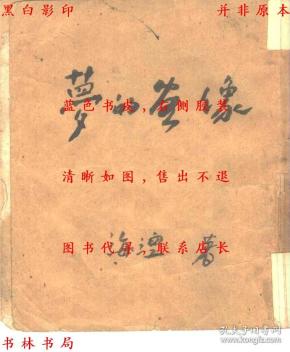 黑白影印 并非原本
夢的畫像
蓝色书皮,右侧胶装
清晰如图,售出不退
图书代寻,联系店长
海 著
书林书局